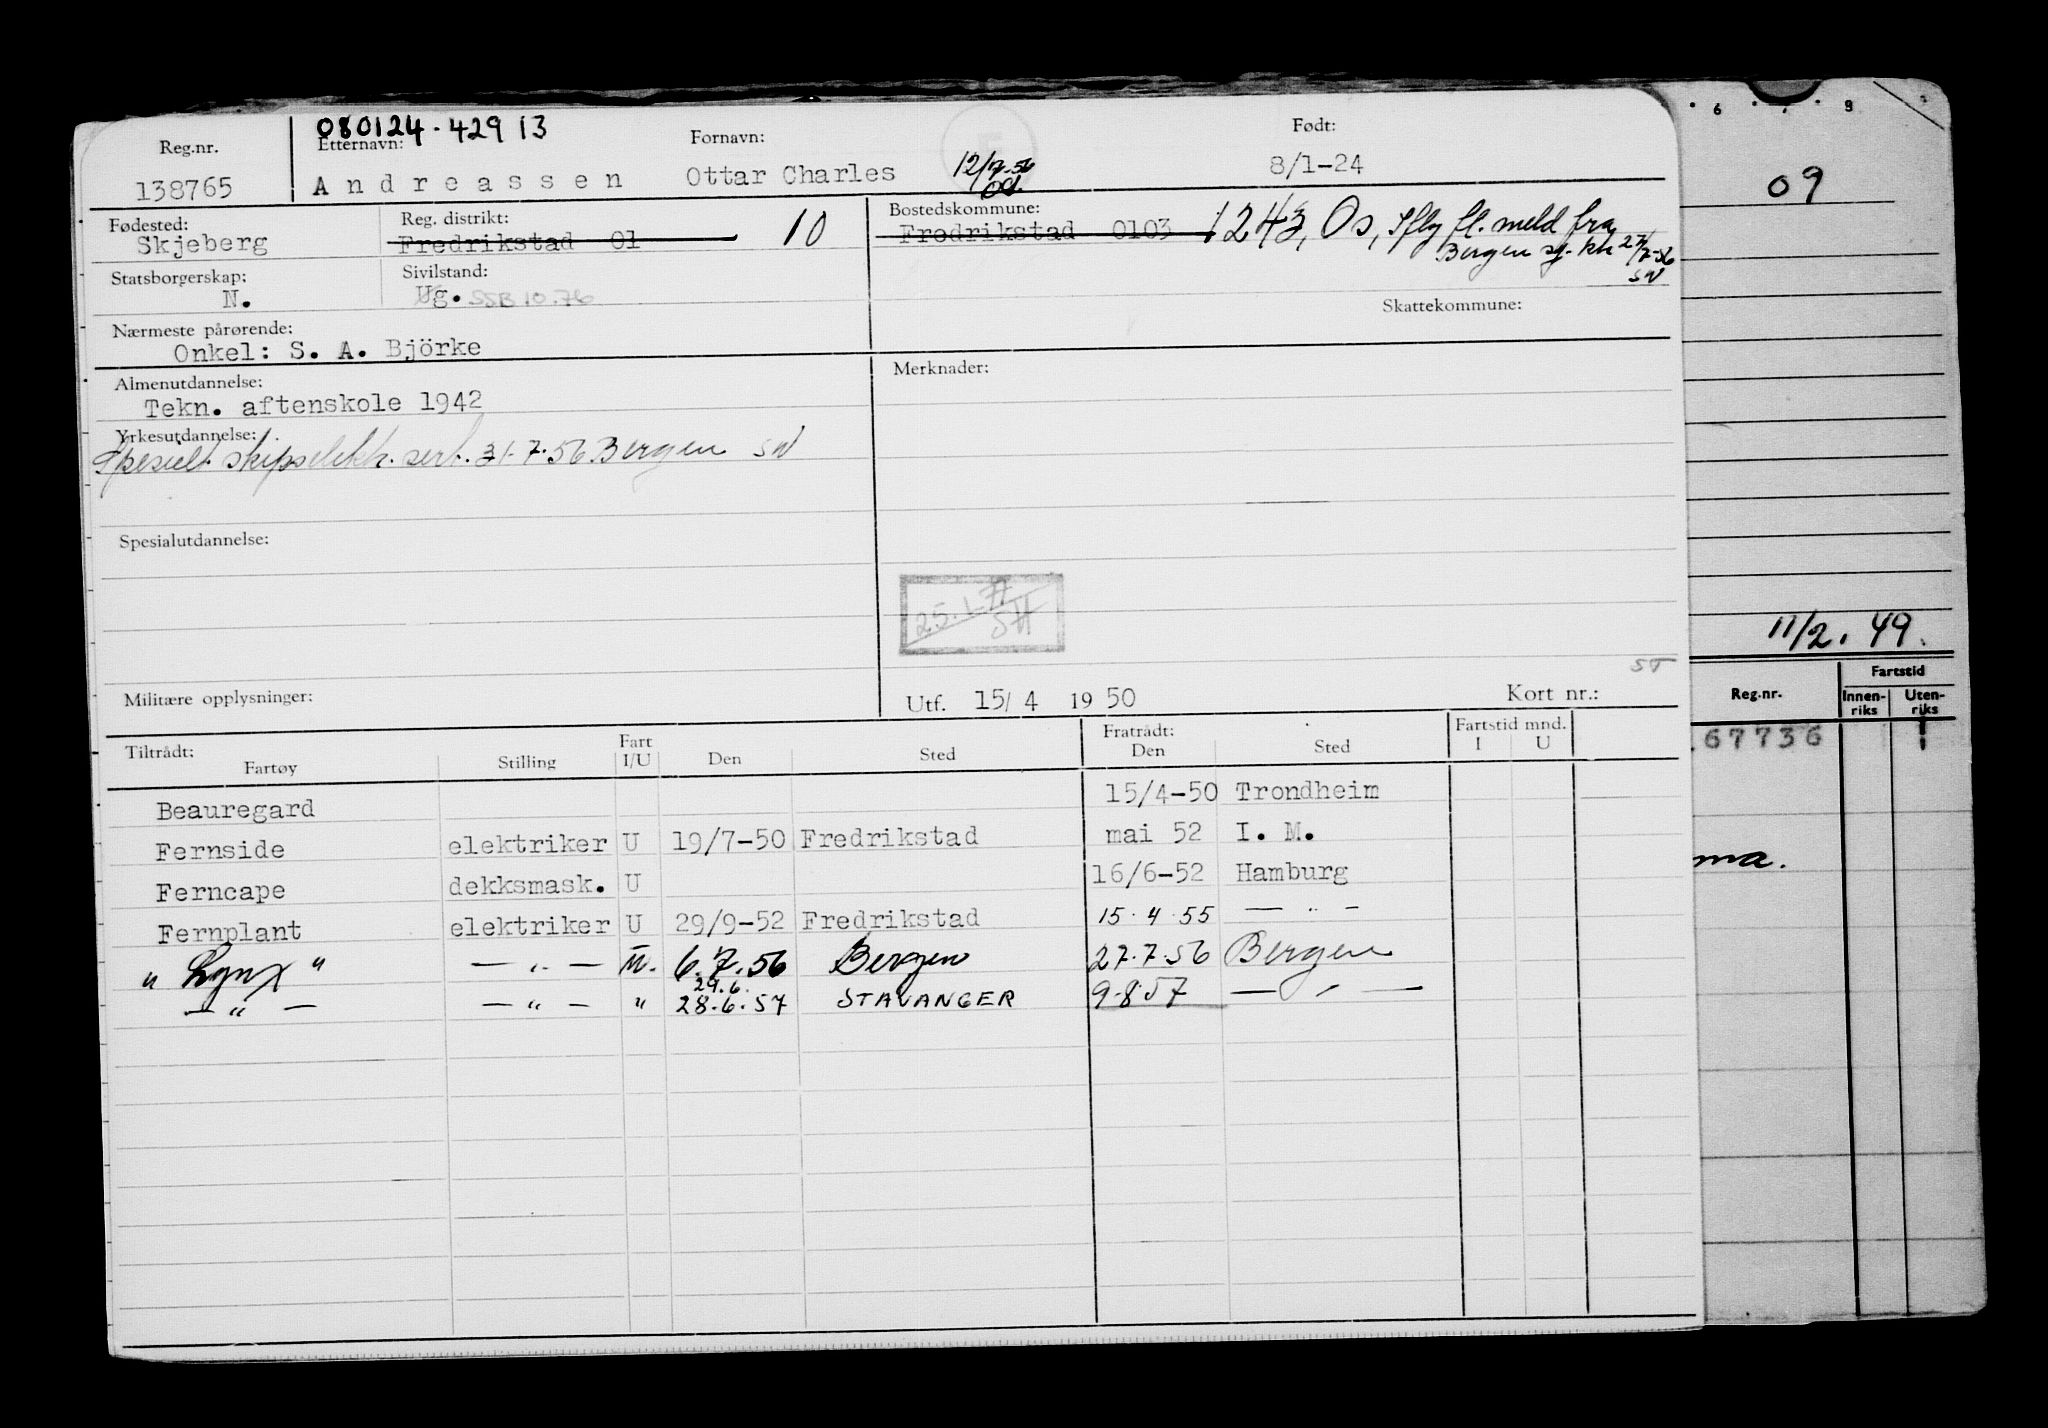 080124-42913
Reg.nr. Etternavn: Fornavn: Født:
138765 Andreassen Ottar Charles 12/7-56 8/1-24
Fødested: Reg. distrikt: Bostedskommune:
Skjeberg Fredrikstad 01 10 Fredrikstad 0103 1243, Os, iflg fl. meld fra
Bergen sj. kk 27/7-56
SW
Statsborgerskap: Sivilstand:
N. Ug. SSB 10.76
Skattekommune:
Nærmeste pårørende:
Onkel: S. A. Björke
Almenutdannelse: Merknader:
Tekn. aftenskole 1942
Yrkesutdannelse:
Spesielt skipselekk. sert. 31-7-56 Bergen SW
Spesialutdannelse:
25.1-77
SH
ST
Militære opplysninger: Utf. 15/4 1950 Kort nr.:
Tiltrådt: Fratrådt: Fartstid mnd.
Fartøy Stilling Fart I/U Den Sted Den Sted I U
Beauregard 15/4-50 Trondheim
Fernside elektriker U 19/7-50 Fredrikstad mai 52 I. M.
Ferncape dekksmask. U 16/6-52 Hamburg
Fernplant elektriker U 29/9-52 Fredrikstad 15.4.55 — " —
"Lynx" — " — U. 6.7.56 Bergen 27.7.56 Bergen
29.6.
— " — — " — " 28.6.57 STAVANGER 9.8.57 — " —
6 7 8
09
11/2.49.
Fartstid
Reg.nr. Innen-riks Uten-riks
67736
ma.